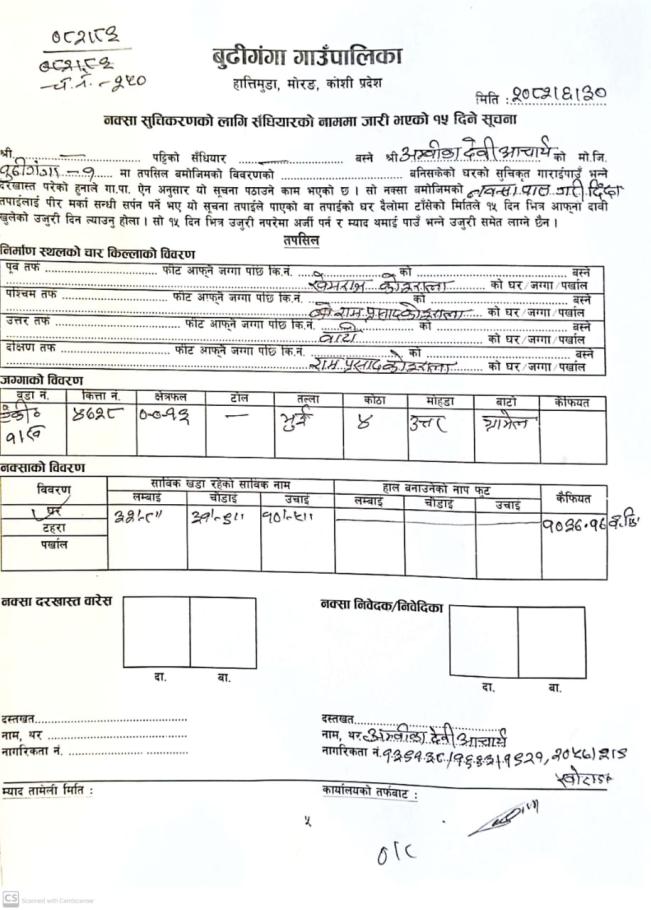 ०८२।८३
०८२।८३
बुढीगंगा गाउँपालिका
हात्तिमुडा, मोरङ, कोशी प्रदेश
मिति : २०८२।६।३०
नक्सा सुचिकरणको लागि सँधियारको नाममा जारी भएको १५ दिने सूचना
श्री पट्टिको सँधियार बस्ने श्री अम्बीका देवी आचार्य को मो.जि.
बुढीगंगा - १ मा तपसिल बमोजिमको बिवरणको बनिसकेको घरको सुचिकृत गराईपाउँ भन्ने
दरखास्त परेको हुनाले गा.पा. ऐन अनुसार यो सूचना पठाउने काम भएको छ । सो नक्सा बमोजिमको नक्सा पास गरी दिँदा
तपाईलाई पीर मर्का सन्धी सर्पन पर्ने भए यो सूचना तपाईले पाएको वा तपाईको घर दैलोमा टाँसेको मितिले १५ दिन भित्र आफ्ना दावी
खुलेको उजुरी दिन ल्याउनु होला । सो १५ दिन भित्र उजुरी नपरेमा अर्जी पर्न र म्याद थमाई पाउँ भन्ने उजुरी समेत लाग्ने छैन ।
तपसिल
निर्माण स्थलको चार किल्लाको विवरण
पूर्व तर्फ फीट आफ्नै जग्गा पछि कि.नं. को बस्ने
खेमराज कोइराला को घर/जग्गा/पर्खाल
पश्चिम तर्फ फीट आफ्नै जग्गा पछि कि.नं. को बस्ने
राम प्रसाद कोइराला को घर/जग्गा/पर्खाल
उत्तर तर्फ फीट आफ्नै जग्गा पछि कि.नं. को बस्ने
बाटो को घर/जग्गा/पर्खाल
दक्षिण तर्फ फीट आफ्नै जग्गा पछि कि.नं. को बस्ने
राम प्रसाद कोइराला को घर/जग्गा/पर्खाल
जग्गाको विवरण
वडा नं. कित्ता नं. क्षेत्रफल टोल तल्ला कोठा मोहडा बाटो कैफियत
४६२८ ०-०-१३ — भुई ४ उत्तर ग्रामेल
१।ख
नक्साको विवरण
विवरण साविक खडा रहेको साविक नाम हाल बनाउनेको नाप फुट कैफियत
लम्बाई चौडाई उचाई लम्बाई चौडाई उचाई
घर ३३'-८" ३१'-६" १०'-९" १०३६.१६ व.फि
टहरा
पर्खाल
नक्सा दरखास्त वारेस नक्सा निवेदक/निवेदिका
दा. बा. दा. बा.
दस्तखत दस्तखत
नाम, थर नाम, थर अम्बीका देवी आचार्य
नागरिकता नं. नागरिकता नं.
खोटाङ
म्याद तामेली मिति : कार्यालयको तर्फबाट :
५
O/C
CS Scanned with CamScanner